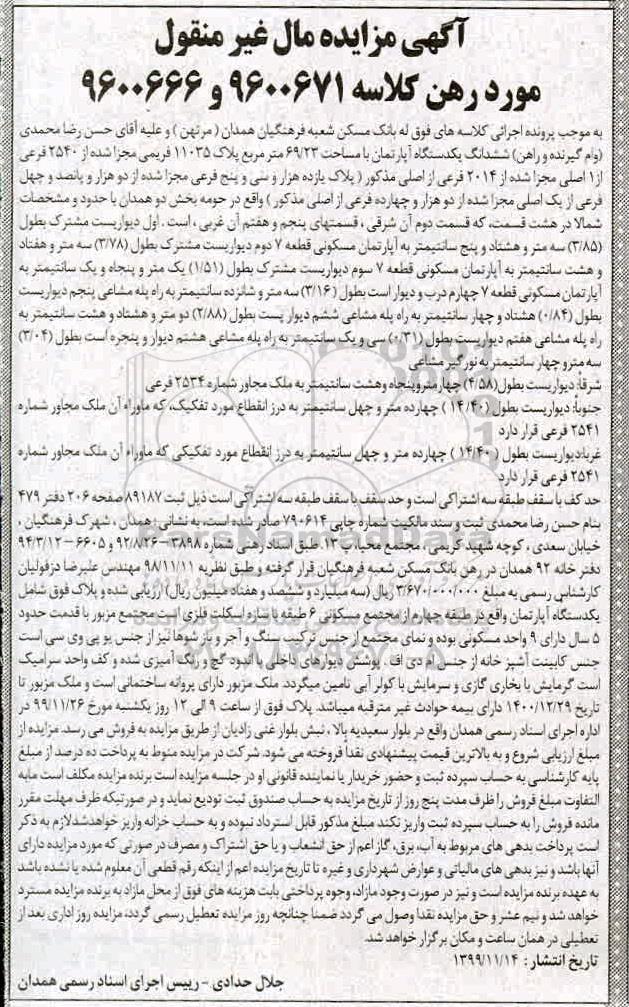 آگهی مزایده مال غیر منقول
مورد رهن کلاسه ۹۶۰۰۶۷۱ و ۹۶۰۰۶۶۶
به موجب پرونده اجرائی کلاسه های فوق له بانک مسکن شعبه فرهنگیان همدان ( مرتهن ) و علیه آقای حسن رضا محمدی
(وام گیرنده و راهن) ششدانگ یکدستگاه آپارتمان با مساحت ۶۹/۲۳ متر مربع پلاک ۱۱۰۳۵ فریمی مجزا شده از ۲۵۴۰ فرعی
از ۱ اصلی مجزا شده از ۲۰۱۴ فرعی از اصلی مذکور ( پلاک یازده هزار و سی و پنج فرعی مجزا شده از دو هزار و پانصد و چهل
فرعی از یک اصلی مجزا شده از دو هزار و چهارده فرعی از اصلی مذکور ) واقع در حومه بخش دو همدان با حدود و مشخصات
شمالا در هشت قسمت، که قسمت دوم آن شرقی ، قسمتهای پنجم و هفتم آن غربی ، است . اول دیواریست مشترک بطول
(۳/۸۵) سه متر و هشتاد و پنج سانتیمتر به آپارتمان مسکونی قطعه ۷ دوم دیواریست مشترک بطول (۳/۷۸) سه متر و هفتاد
و هشت سانتیمتر به آپارتمان مسکونی قطعه ۷ سوم دیواریست مشترک بطول (۱/۵۱) یک متر و پنجاه و یک سانتیمتر به
آپارتمان مسکونی قطعه ۷ چهارم درب و دیوار است بطول (۳/۱۶) سه متر و شانزده سانتیمتر به راه پله مشاعی پنجم دیواریست
بطول (۰/۸۴) هشتاد و چهار سانتیمتر به راه پله مشاعی ششم دیوار یست بطول (۲/۸۸) دو متر و هشتاد و هشت سانتیمتر به
راه پله مشاعی هفتم دیواریست بطول (۰/۳۱) سی و یک سانتیمتر به راه پله مشاعی هشتم دیوار و پنجره است بطول (۳/۰۴)
سه متر و چهار سانتیمتر به نورگیر مشاعی
شرقا: دیواریست بطول (۴/۵۸) چهار متر و پنجاه و هشت سانتیمتر به ملک مجاور شماره ۲۵۳۴ فرعی
جنوبا: دیواریست بطول (۱۴/۴۰) چهارده متر و چهل سانتیمتر به درز انقطاع مورد تفکیک، که ماوراء آن ملک مجاور شماره
۲۵۴۱ فرعی قرار دارد
غربا: دیواریست بطول ( ۱۴/۴۰ ) چهارده متر و چهل سانتیمتر به درز انقطاع مورد تفکیکی که ماوراء آن ملک مجاور شماره
۲۵۴۱ فرعی قرار دارد
حد کف با سقف طبقه سه اشتراکی است و حد سقف با سقف طبقه سه اشتراکی است ذیل ثبت ۸۹۱۸۷ صفحه ۲۰۶ دفتر ۴۷۹
بنام حسن رضا محمدی ثبت و سند مالکیت شماره چاپی ۷۹۰۶۱۴ صادر شده است، به نشانی: همدان ، شهرک فرهنگیان ،
خیابان سعدی ، کوچه شهید کریمی ، مجتمع محیا، پ ۱۳. طبق اسناد رهنی شماره ۳۸۹۸-۹۲/۸/۲۶ و ۶۶۰۵ - ۹۴/۳/۱۲
دفتر خانه ۹۲ همدان در رهن بانک مسکن شعبه فرهنگیان قرار گرفته و طبق نظریه ۹۸/۱۱/۱۱ مهندس علیرضا دزفولیان
کارشناس رسمی به مبلغ ۳/۶۷۰/۰۰۰/۰۰۰ ریال (سه میلیارد و ششصد و هفتاد میلیون ریال) ارزیابی شده و پلاک فوق شامل
یکدستگاه آپارتمان واقع در طبقه چهارم از مجتمع مسکونی ۶ طبقه با سازه اسکلت فلزی است مجتمع مزبور با قدمت حدود
۵ سال دارای ۹ واحد مسکونی بوده و نمای مجتمع از جنس ترکیب سنگ و آجر و باز شوها نیز از جنس یو پی وی سی است
جنس کابینت آشپز خانه از جنس ام دی اف . پوشش دیوارهای داخلی با اندود گچ و رنگ آمیزی شده و کف واحد سرامیک
است گرمایش با بخاری گازی و سرمایش با کولر آبی تامین میگردد. ملک مزبور دارای پروانه ساختمانی است و ملک مزبور تا
تاریخ ۱۴۰۰/۱۲/۲۹ دارای بیمه حوادث غیر مترقبه میباشد. پلاک فوق از ساعت ۹ الی ۱۲ روز یکشنبه مورخ ۹۹/۱۱/۲۶ در
اداره اجرای اسناد رسمی همدان واقع در بلوار سعیدیه بالا ، نبش بلوار غنی زادیان از طریق مزایده به فروش می رسد. مزایده از
مبلغ ارزیابی شروع و به بالاترین قیمت پیشنهادی نقدا فروخته می شود. شرکت در مزایده منوط به پرداخت ده درصد از مبلغ
پایه کارشناسی به حساب سپرده ثبت و حضور خریدار یا نماینده قانونی او در جلسه مزایده است برنده مزایده مکلف است مابه
التفاوت مبلغ فروش را ظرف مدت پنج روز از تاریخ مزایده به حساب صندوق ثبت تودیع نماید و در صورتیکه ظرف مهلت مقرر
مانده فروش را به حساب سپرده ثبت واریز نکند مبلغ مذکور قابل استرداد نبوده و به حساب خزانه واریز خواهدشد لازم به ذکر
است پرداخت بدهی های مربوط به آب، برق، گاز اعم از حق انشعاب و یا حق اشتراک و مصرف در صورتی که مورد مزایده دارای
آنها باشد و نیز بدهی های مالیاتی و عوارض شهرداری و غیره تا تاریخ مزایده اعم از اینکه رقم قطعی آن معلوم شده یا نشده باشد
به عهده برنده مزایده است و نیز در صورت وجود مازاد، وجوه پرداختی بابت هزینه های فوق از محل مازاد به برنده مزایده مسترد
خواهد شد و نیم عشر و حق مزایده نقدا وصول می گردد ضمنا چنانچه روز مزایده تعطیل رسمی گردد، مزایده روز اداری بعد از
تعطیلی در همان ساعت و مکان برگزار خواهد شد.
تاریخ انتشار : ۱۳۹۹/۱۱/۱۴
جلال حدادی - رییس اجرای اسناد رسمی همدان